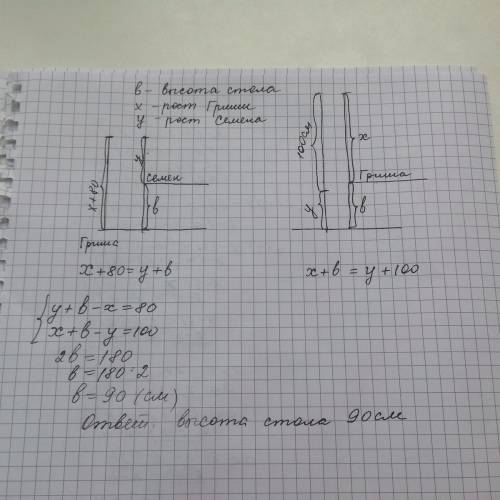 в - высота стола
x - рост Гриши
y - рост Семена
x+80
y
Семен
в
Гриша
100см
y
x
Гриша
в
x+80=y+в
x+в = y+100
y+в-x=80
x+в-y=100
2в=180
в=180:2
в=90 (см)
Ответ. высота стола 90см